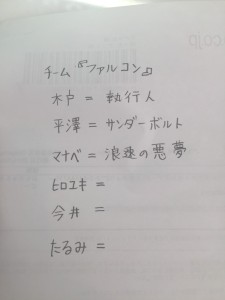 チーム『ファルコン』
木戸 = 執行人
平澤 = サンダーボルト
マナベ = 浪速の悪夢
ヒロユキ =
今井 =
たるみ =